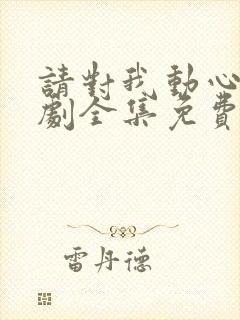 請對我動心
劇全集免費
雷丹德